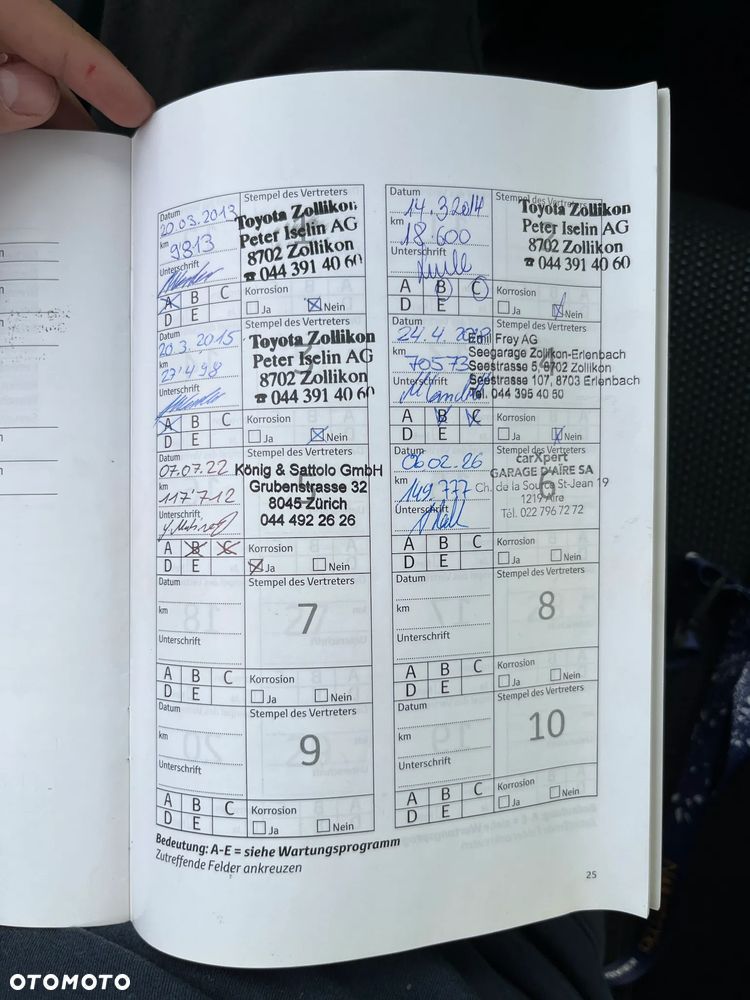 Datum
20.03.2013
km
9813
Unterschrift
A B C
D E
Stempel des Vertreters
Toyota Zollikon
Peter Iselin AG
8702 Zollikon
☎ 044 391 40 60
Korrosion
Ja Nein
Datum
14.3.2014
km
18.600
Unterschrift
A B C
D E
Stempel des Vertreters
Toyota Zollikon
Peter Iselin AG
8702 Zollikon
☎ 044 391 40 60
Korrosion
Ja Nein
Datum
20.3.2015
km
27'498
Unterschrift
A B C
D E
Stempel des Vertreters
3
Toyota Zollikon
Peter Iselin AG
8702 Zollikon
☎ 044 391 40 60
Korrosion
Ja Nein
Datum
24.4.
km
70573
Unterschrift
A B C
D E
Stempel des Vertreters
4
Emil Frey AG
Seegarage Zollikon-Erlenbach
Seestrasse 5, 8702 Zollikon
Seestrasse 107, 8703 Erlenbach
Tel. 044 395 40 50
Korrosion
Ja Nein
Datum
07.07.22
km
117'712
Unterschrift
A B C
D E
Stempel des Vertreters
5
König & Sattolo GmbH
Grubenstrasse 32
8045 Zürich
044 492 26 26
Korrosion
Ja Nein
Datum
06 02.26
km
149.777
Unterschrift
A B C
D E
Stempel des Vertreters
6
carXpert
GARAGE D'AÏRE SA
Ch. de la Source St-Jean 19
1219 Aïre
Tél. 022 796 72 72
Korrosion
Ja Nein
Datum
km
Unterschrift
A B C
D E
Stempel des Vertreters
7
Korrosion
Ja Nein
Datum
km
Unterschrift
A B C
D E
Stempel des Vertreters
8
Korrosion
Ja Nein
Datum
km
Unterschrift
A B C
D E
Stempel des Vertreters
9
Korrosion
Ja Nein
Datum
km
Unterschrift
A B C
D E
Stempel des Vertreters
10
Korrosion
Ja Nein
Bedeutung: A-E = siehe Wartungsprogramm
Zutreffende Felder ankreuzen
25
OTOMOTO